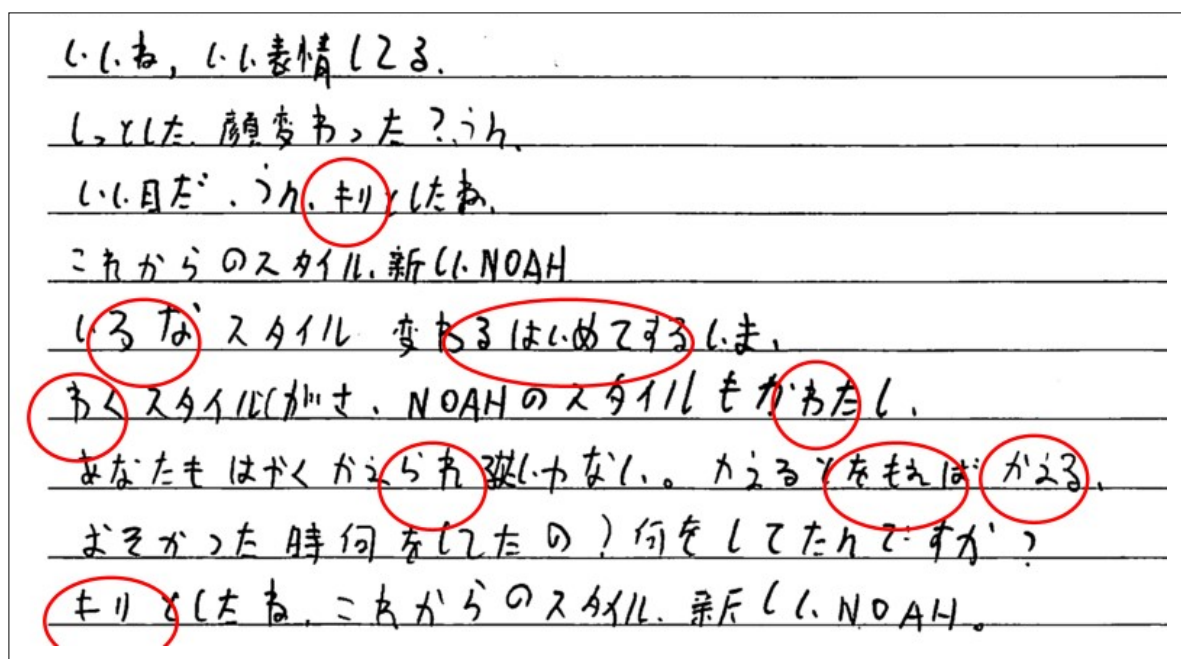 いいね,いい表情してる.
しっとした.顔変わった?うん.
いい目だ.うん.キリとしたね.
これからのスタイル.新しいNOAH
いるなスタイル 変わるはじめてするいま.
わくスタイルじがさ.NOAHのスタイルもかわたし.
あなたもはやくかえられ しかない。かえるとをもえばかえる.
おそかった時何をしてたの?何をしてたんですか?
キリとしたね.これからのスタイル.新しいNOAH。